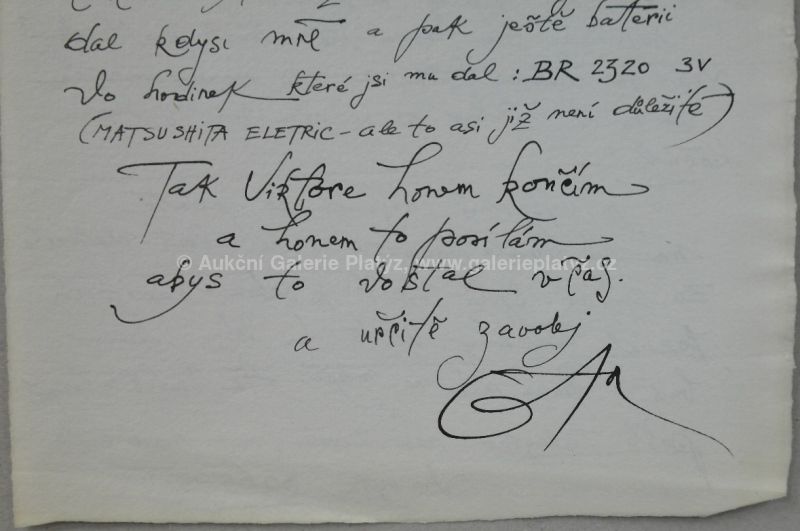 dal kdysi mně a pak ještě baterii
do hodinek které jsi mu dal : BR 2320 3V
(MATSUSHITA ELETRIC – ale to asi již není důležité)
Tak Viktore honem končím
a honem to posílám
abys to dostal včas.
a určitě zavolej
© Aukční Galerie Platýz, www.galerieplatyz.cz